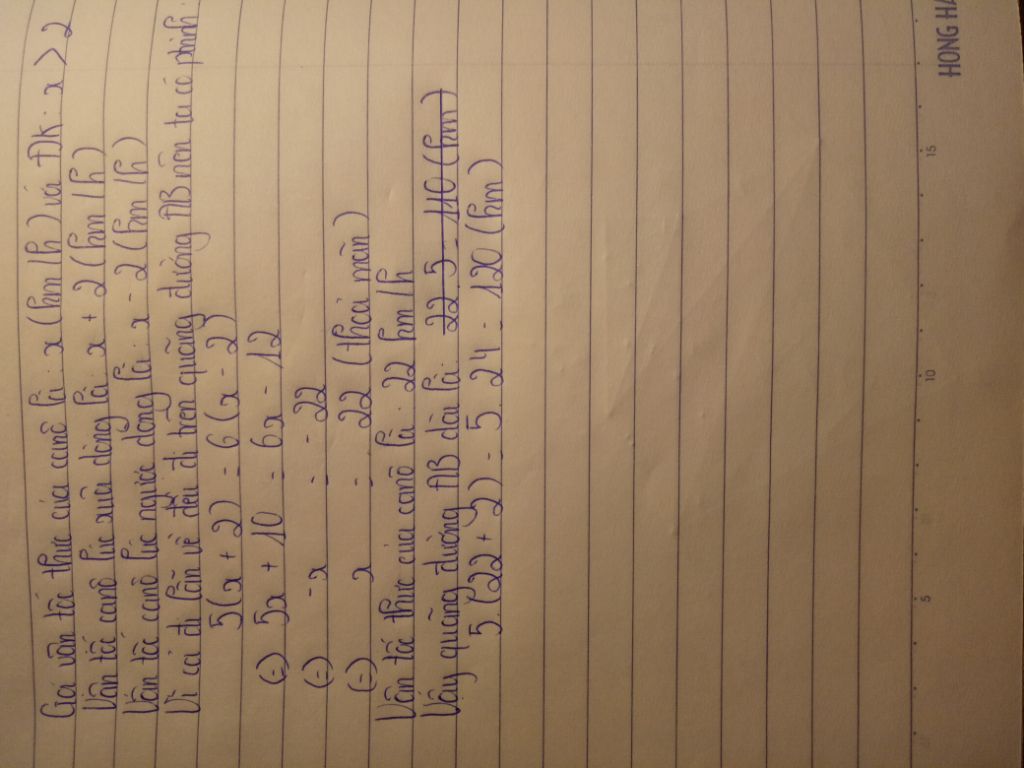 Gọi vận tốc thực của canô là : x (km/h) và ĐK : x > 2
Vận tốc canô lúc xuôi dòng là : x + 2 (km/h)
Vận tốc canô lúc ngược dòng là : x - 2 (km/h)
Vì cả đi lẫn về đều đi trên quãng đường AB nên ta có phương
5(x + 2) = 6(x - 2)
(=) 5x + 10 = 6x - 12
(=) -x = -22
(=) x = 22 (thỏa mãn)
Vận tốc thực của canô là : 22 km/h
Vậy quãng đường AB dài là : 22 . 5 = 110 (km)
5 (22 + 2) = 5 . 24 = 120 (km)
5 10 15
HONG HA